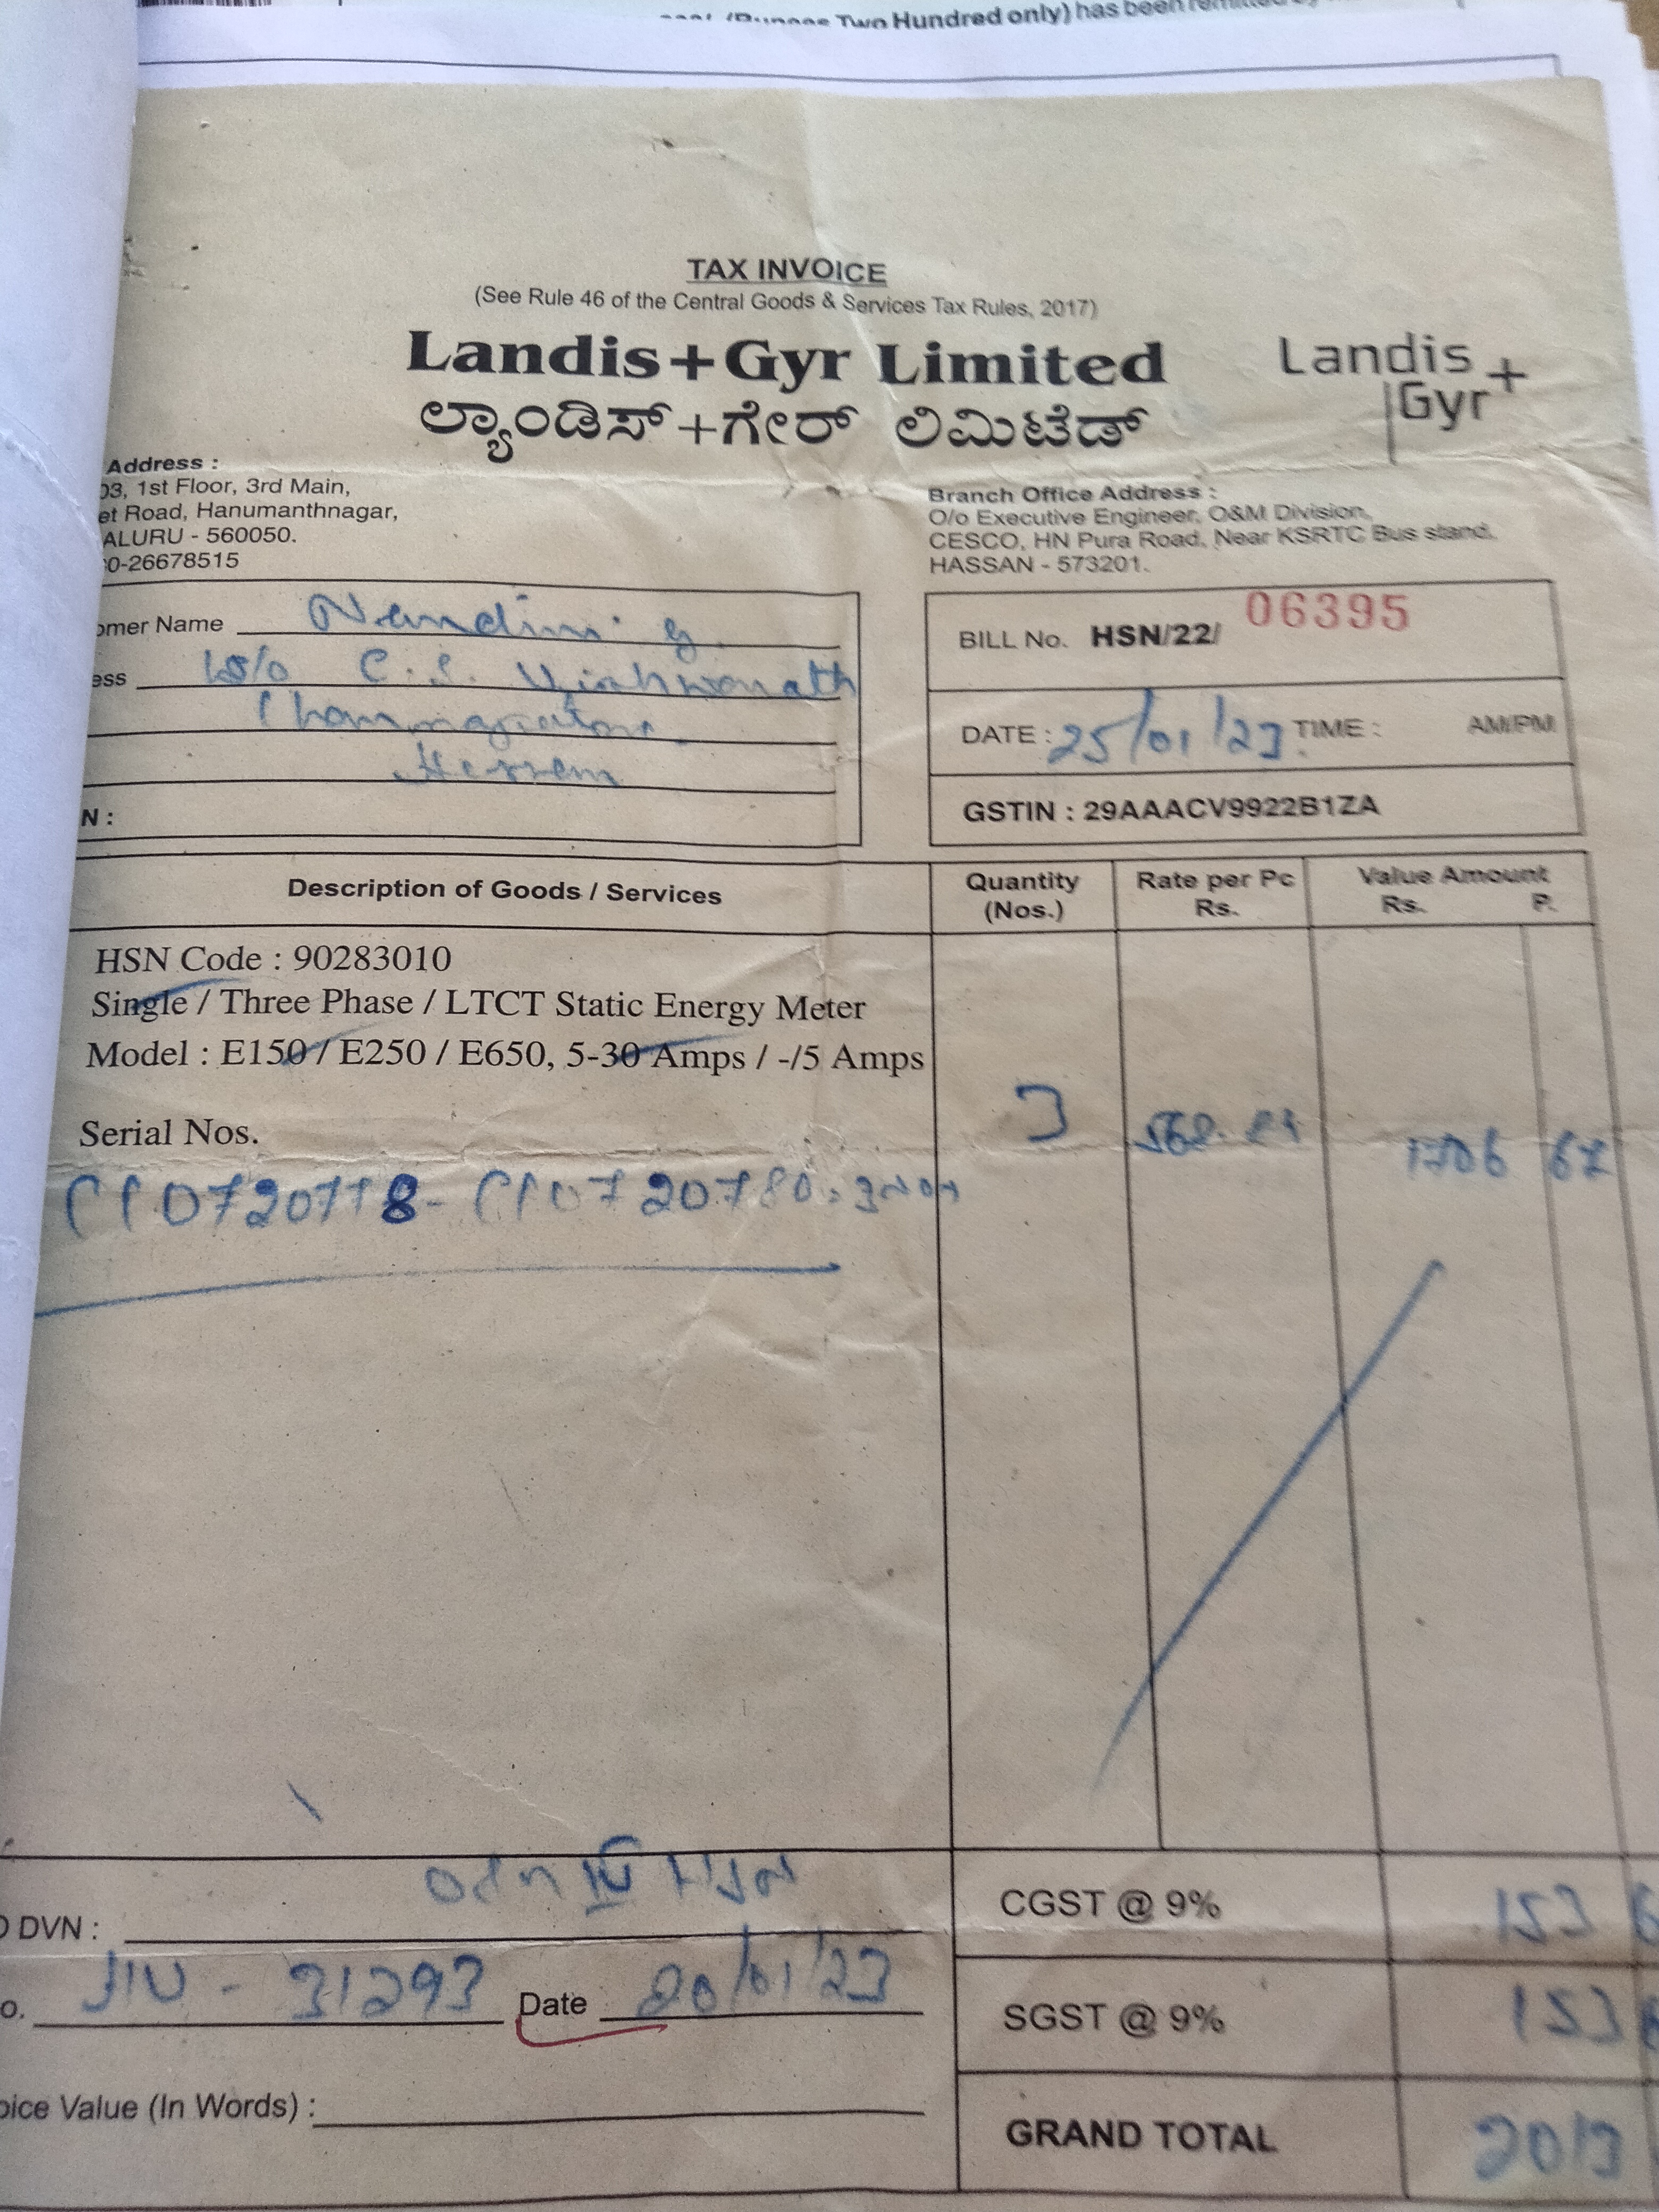 (Rupees Two Hundred only) has been remitted by
TAX INVOICE
(See Rule 46 of the Central Goods & Services Tax Rules, 2017)
Landis+Gyr Limited
ಲ್ಯಾಂಡಿಸ್+ಗೇರ್ ಲಿಮಿಟೆಡ್
Landis
Gyr+
Address :
03, 1st Floor, 3rd Main,
et Road, Hanumanthnagar,
ALURU - 560050.
0-26678515
Branch Office Address :
O/o Executive Engineer, O&M Division,
CESCO, HN Pura Road, Near KSRTC Bus stand.
HASSAN - 573201.
omer Name Nandini g
ess W/o C.S. Vishwanath
N :
BILL No. HSN/22/ 06395
DATE : 25/01/23 TIME : AM/PM
GSTIN : 29AAACV9922B1ZA
Description of Goods / Services
Quantity (Nos.)
Rate per Pc Rs.
Value Amount Rs. P.
HSN Code : 90283010
Single / Three Phase / LTCT Static Energy Meter
Model : E150 / E250 / E650, 5-30 Amps / -/5 Amps
Serial Nos.
3 1706 67
DVN :
o. 31293 Date 20/01/23
oice Value (In Words) :
CGST @ 9% 153
SGST @ 9% 153
GRAND TOTAL 2013